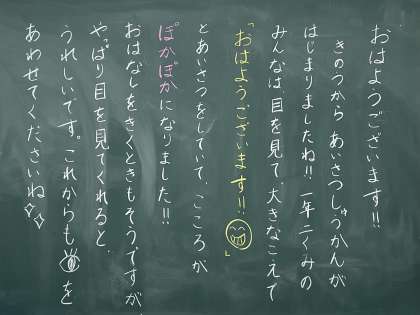 おはようございます!!
きのうから あいさつしゅうかんが
はじまりましたね!! 一年二くみの
みんなは、目を見て、大きなこえで
「おはようございます!!」
とあいさつをしていて、こころが
ぽかぽかになりました!!
おはなしをきくときもそうですが、
やっぱり目を見てくれると、
うれしいです。これからも を
あわせてくださいね